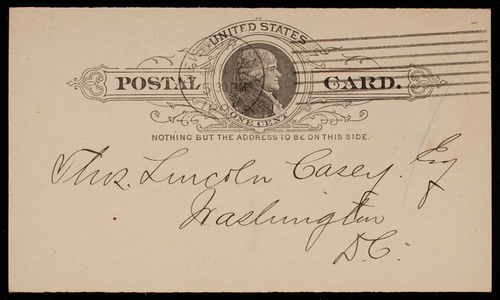 UNITED STATES
POSTAL CARD.
ONE CENT
NOTHING BUT THE ADDRESS TO BE ON THIS SIDE.
Thos. Lincoln Casey. Esq
Washington
D.C.